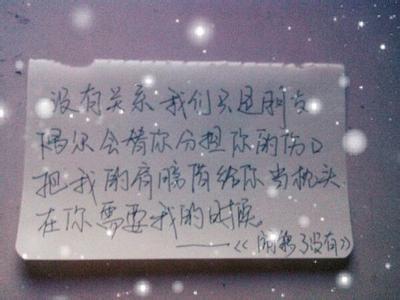 没有关系 我们只是朋友
偶尔会替你分担你的伤口
把我的肩膀借给你当枕头
在你需要我的时候
——《闹够了没有》